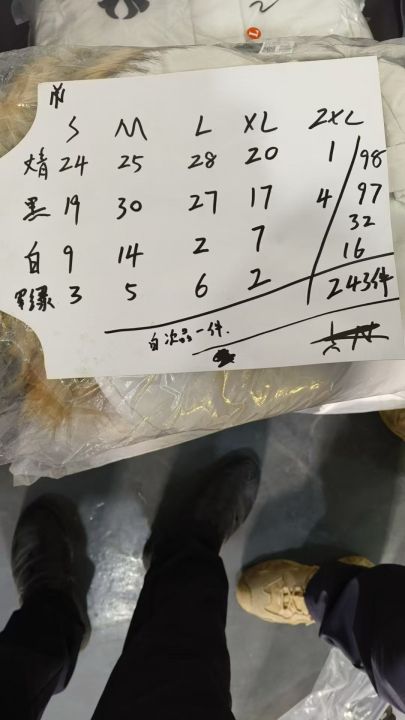 S M L XL 2XL
24 25 28 20 1 98
黑 19 30 27 17 4 97
白 9 14 2 7 32
军绿 3 5 6 2 16
243件
白次品一件.